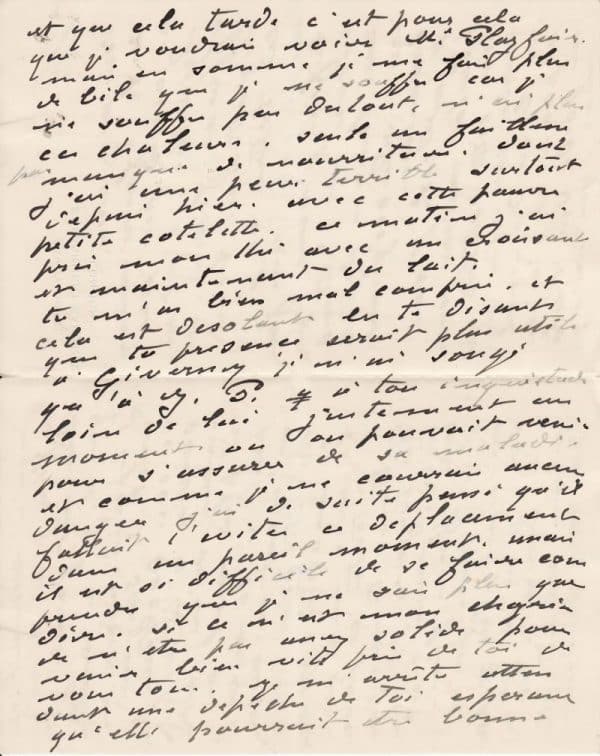 et que cela tarde c'est pour cela
que je voudrai voir Mr Playfair.
mais en somme je me fait plus
de bile que je ne souffre car je
ne souffre pas du tout, n'ai plus
ces chaleurs. seule un faiblesse
par manque de nourriture. dont
j'ai une peur terrible surtout
depuis hier. avec cette pauvre
petite cotelette. ce matin j'ai
pris mon thé avec un croissant
et maintenant du lait.
tu m'as bien mal compris. et
cela est désolant en te disant
que ta presence serait plus utile
à Giverny je n'ai songé
qu'à J. P. à ton inquiétude
loin de lui justement au
moment où on pouvait venir
pour s'assurer de sa maladie
et comme je ne courrais aucun
danger j'ai de suite pensé qu'il
fallait t'éviter ce deplacement
dans un pareil moment. mais
il est si difficile de se faire com
prendre que je ne sais plus que
dire. si ce n'est mon chagrin
de n'être pas assez solide pour
venir bien vite près de toi de
vous tous. je m'arrête atten
dant une depêche de toi esperant
qu'elle pourrait être bonne